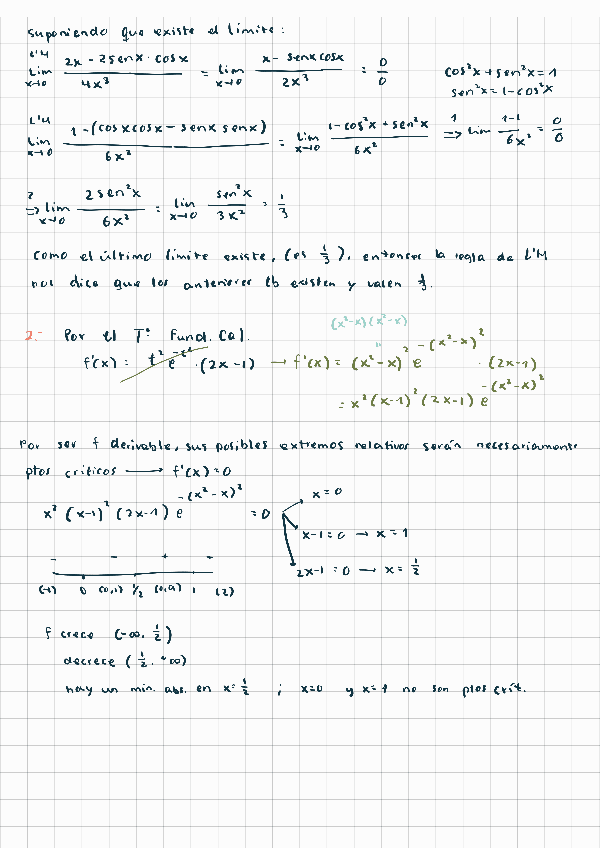 suponiendo que existe el límite:
L'H lim x→0 (2x - 2senx·cosx)/(4x³) = lim x→0 (x - senxcosx)/(2x³) = 0/0
cos²x + sen²x = 1
sen²x = 1 - cos²x
L'H lim x→0 (1 - (cosxcosx - senxsenx))/(6x²) = lim x→0 (1 - cos²x + sen²x)/(6x²) 1⇒ lim (1-1)/(6x²) = 0/0
2⇒ lim x→0 (2sen²x)/(6x²) = lim x→0 (sen²x)/(3x²) = 1/3
Como el último límite existe, (es 1/3), entonces la regla de L'H
nos dice que los anteriores tb existen y valen 1/3.
(x²-x)(x²-x)
2.- Por el Tº Fund. Cal.
f'(x) = t² e^(-t²) · (2x-1) → f'(x) = (x²-x)² e^(-(x²-x)²) · (2x-1)
= x² (x-1)² (2x-1) e^(-(x²-x)²)
Por ser f derivable, sus posibles extremos relativos serán necesariamente
ptos críticos → f'(x) = 0
x² (x-1)² (2x-1) e^(-(x²-x)²) = 0
x = 0
x-1 = 0 → x = 1
2x-1 = 0 → x = 1/2
- - + +
(-1) 0 1/2 1 (2)
f crece (-∞, 1/2)
decrece (1/2, +∞)
hay un min. abs. en x = 1/2 ; x=0 y x=1 no son ptos crít.